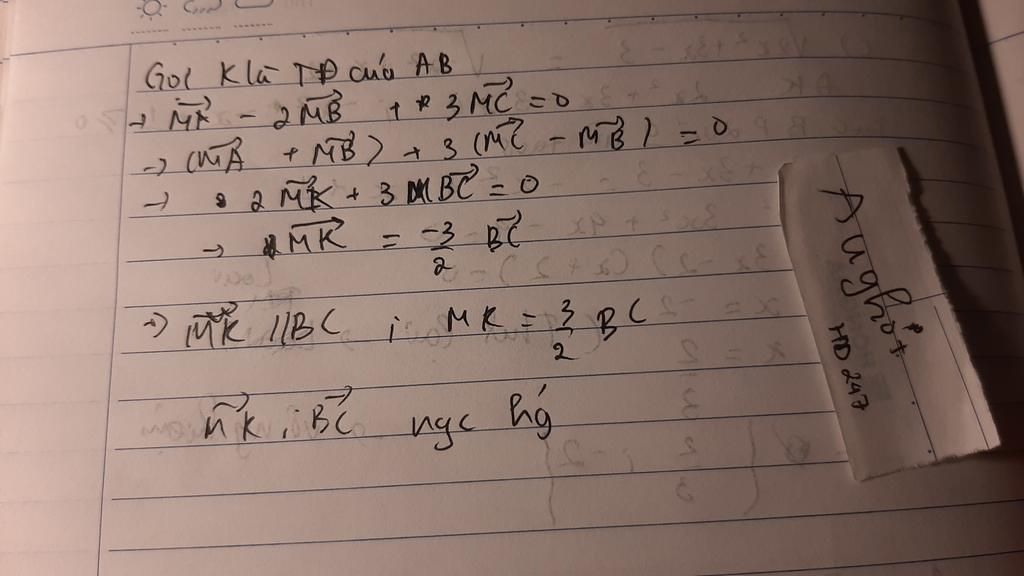 Gọi K là TĐ của AB
→ MA - 2MB + 3MC = 0
→ (MA + MB) + 3(MC - MB) = 0
→ 2MK + 3BC = 0
→ MK = -3/2 BC
→ MK // BC ; MK = 3/2 BC
MK, BC ngc hg
Aughót
HD 247